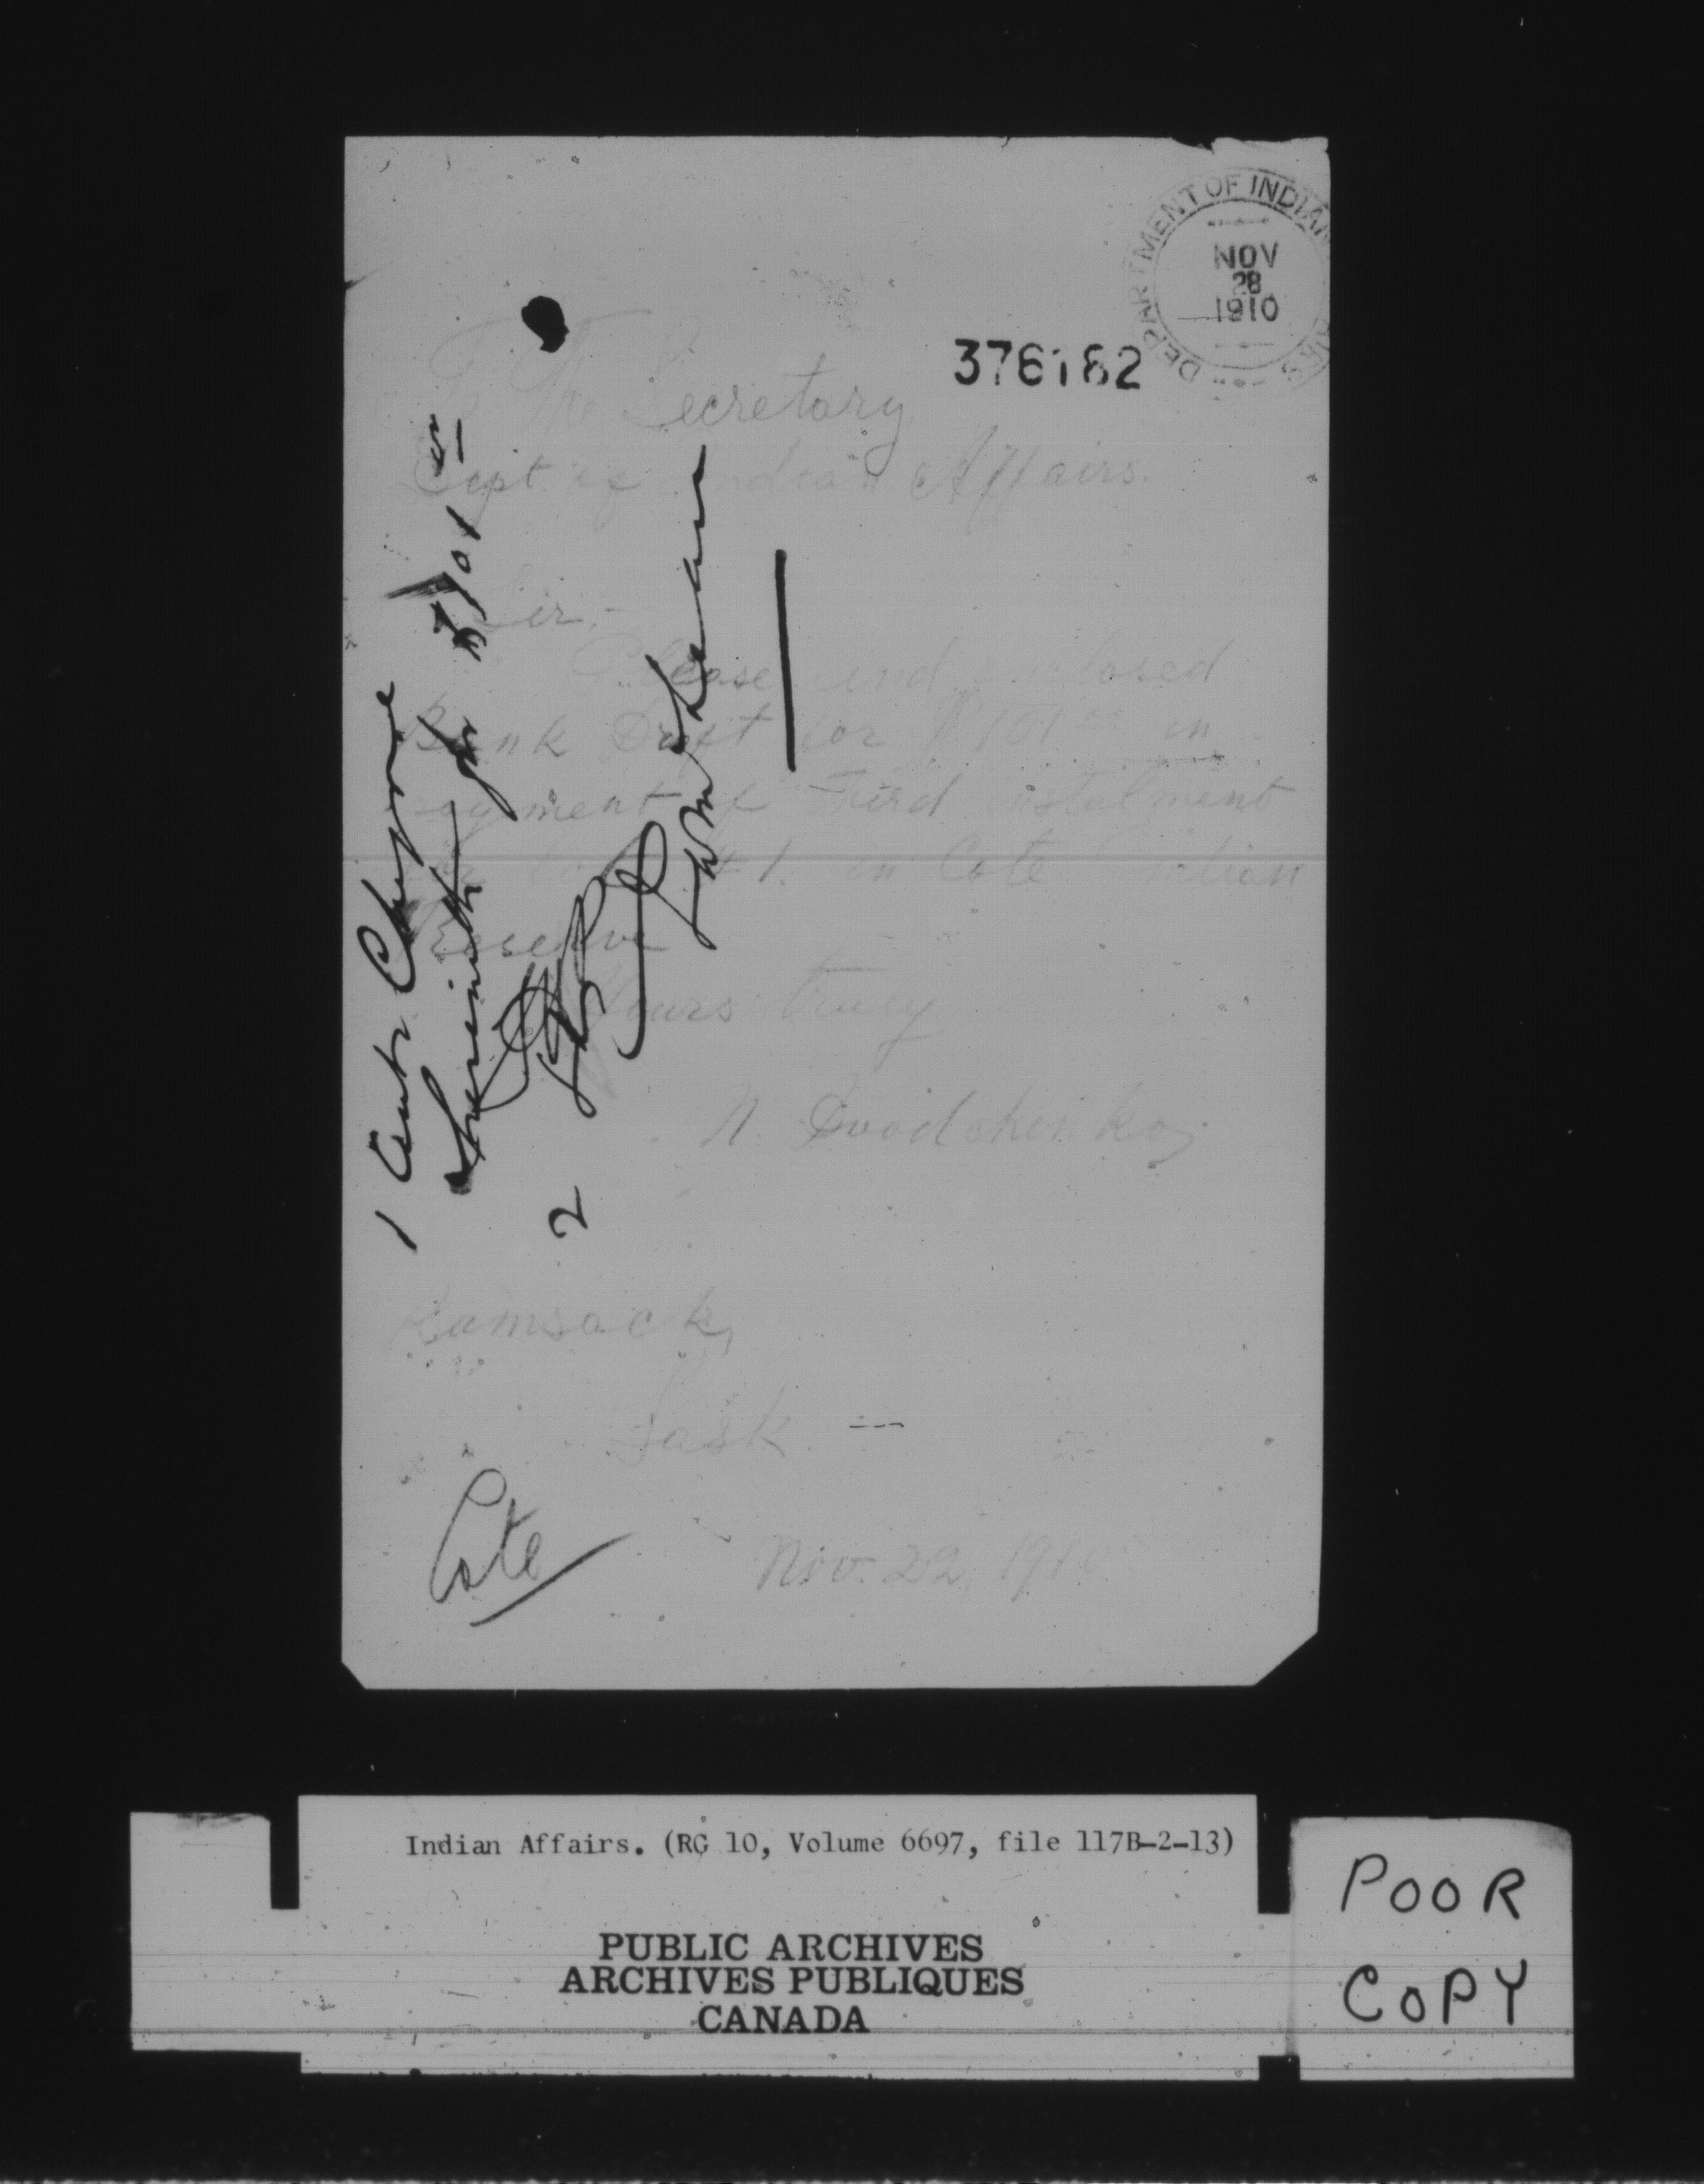 DEPARTMENT OF INDIAN AFFAIRS
NOV
28
1910
376182
To the Secretary
Dept of Indian Affairs.
Sir:-
Please find enclosed
Bank Draft for $101.00 in
payment of Third instalment
Lot #1. in Cote Indian
Reserve
Yours truly
N.
Kamsack,
Sask.
Nov. 22, 1910
1 Cent Chyme
herewith for $101
2
Cote
Indian Affairs. (RG 10, Volume 6697, file 117B-2-13)
PUBLIC ARCHIVES
ARCHIVES PUBLIQUES
CANADA
POOR
COPY